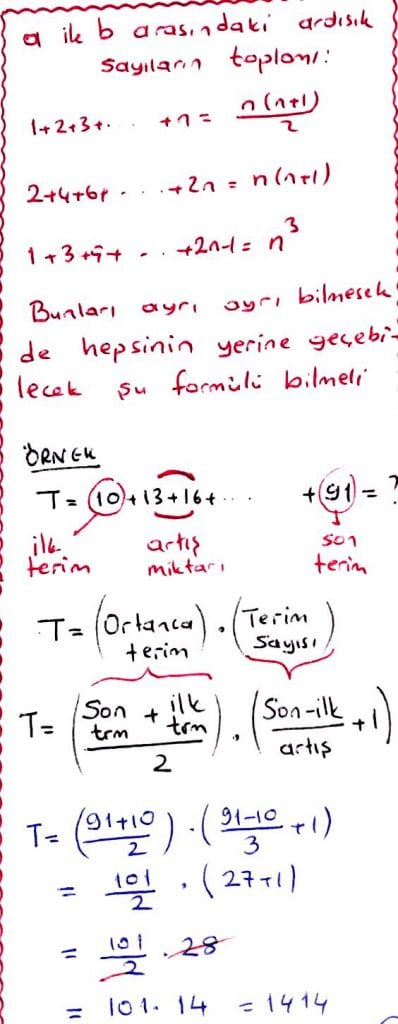 a ile b arasındaki ardışık
sayıların toplamı:
1+2+3+.... +n = n(n+1)/2
2+4+6+....+2n = n(n+1)
1+3+5+...+2n-1 = n³
Bunları ayrı ayrı bilmesek
de hepsinin yerine geçebi-
lecek şu formülü bilmeli
ÖRNEK
T = 10+13+16+.... +91 = ?
ilk terim artış miktarı son terim
T = (Ortanca terim) . (Terim Sayısı)
T = ((Son trm + ilk trm)/2) . ((Son-ilk)/artış + 1)
T = ((91+10)/2) . ((91-10)/3 + 1)
= 101/2 . (27+1)
= 101/2 . 28
= 101.14 = 1414